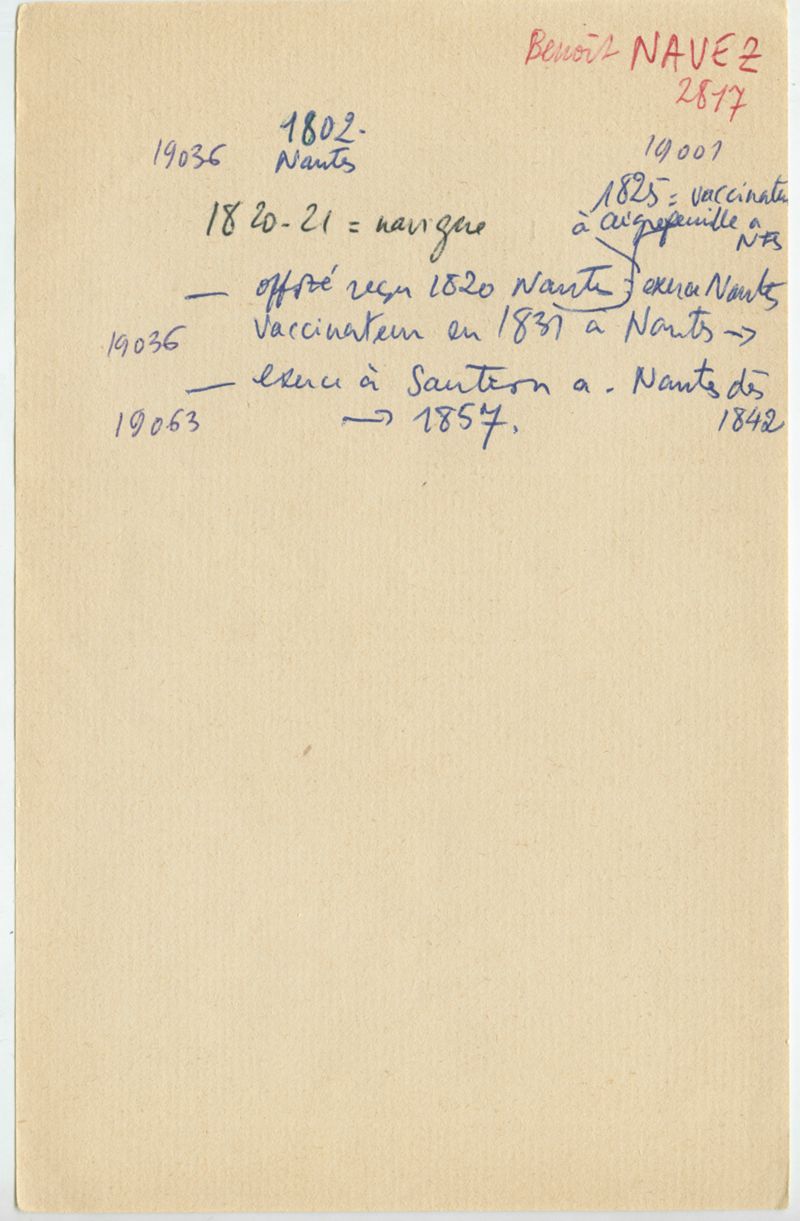 Benoît NAVEZ
2817
1802.
19036 Nantes
19001
1825 = vaccinateu
à aigrefeuille a
Nts
1820-21 = navigue
— reçu 1820 Nantes : exerce Nantes
19036 Vaccinateur en 1831 a Nantes →
— exerce à Sautron a. Nantes dès
1842
19063 → 1857.